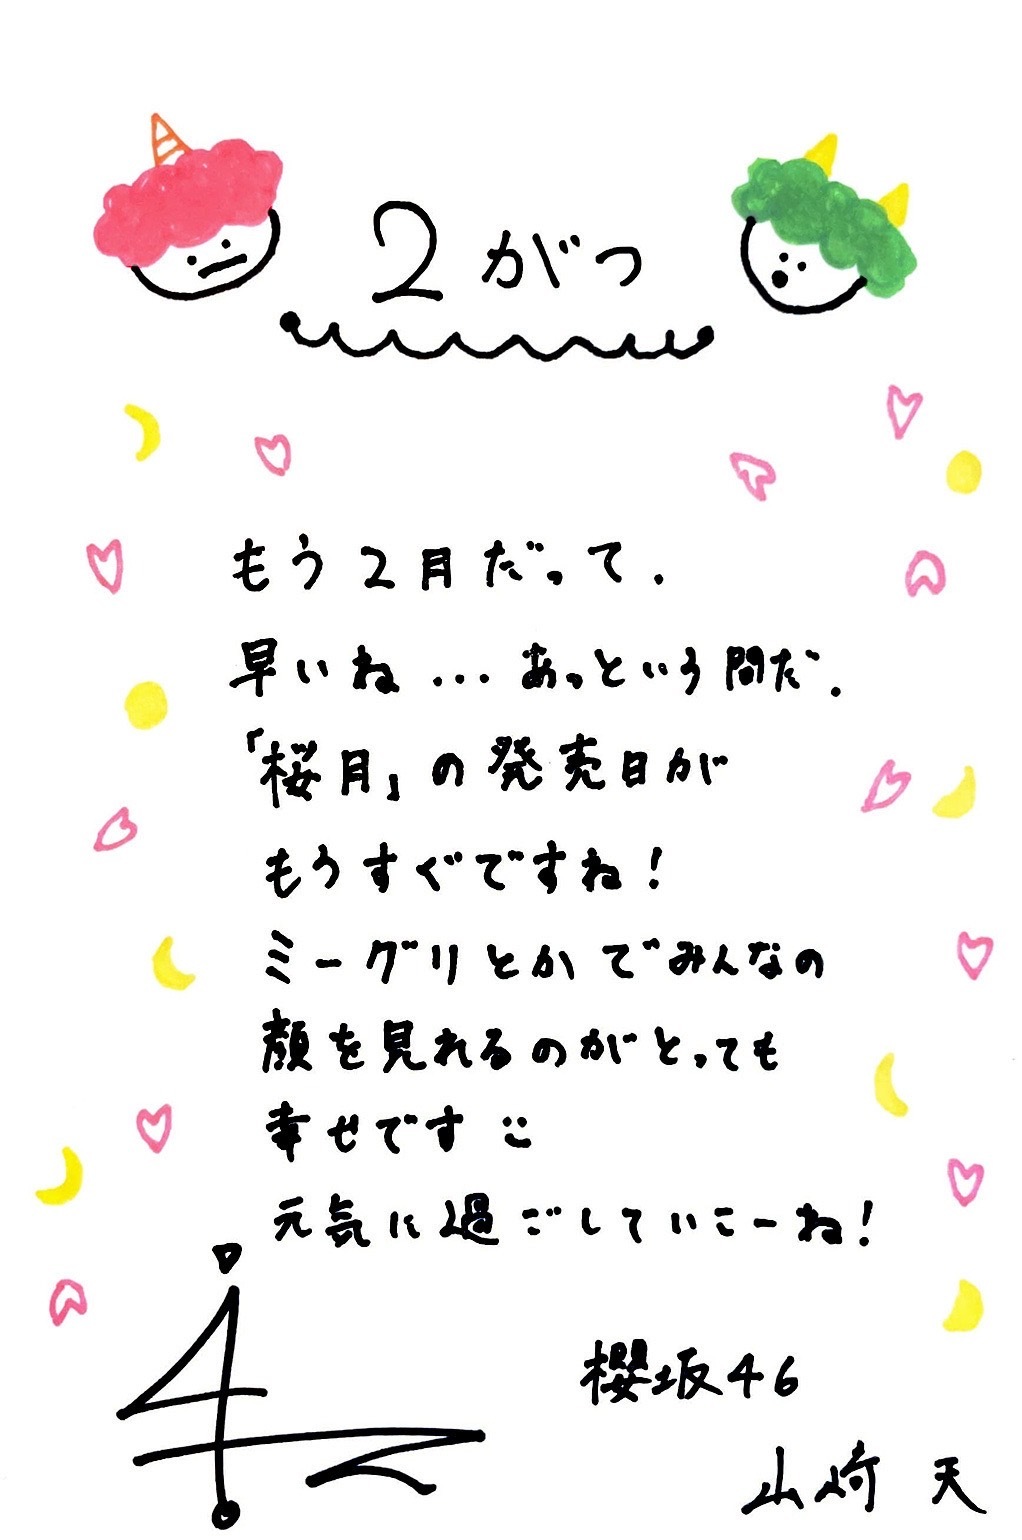 2がつ
もう2月だって.
早いね...あっという間だ.
「桜月」の発売日が
もうすぐですね!
ミーグリとかでみんなの
顔を見れるのがとっても
幸せです
元気に過ごしていこーね!
櫻坂46
山﨑 天